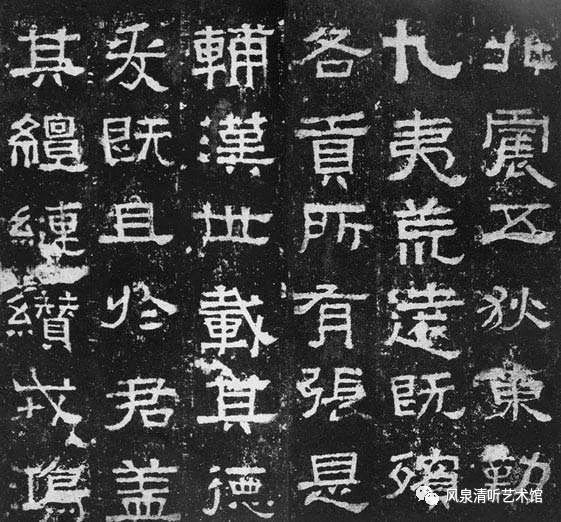 北震五狄東勤
九夷荒遠既殯
各貢所有張是
輔漢世載其德
爰既且於君盖
其繵縺纘戎鴻
风泉清听艺术馆